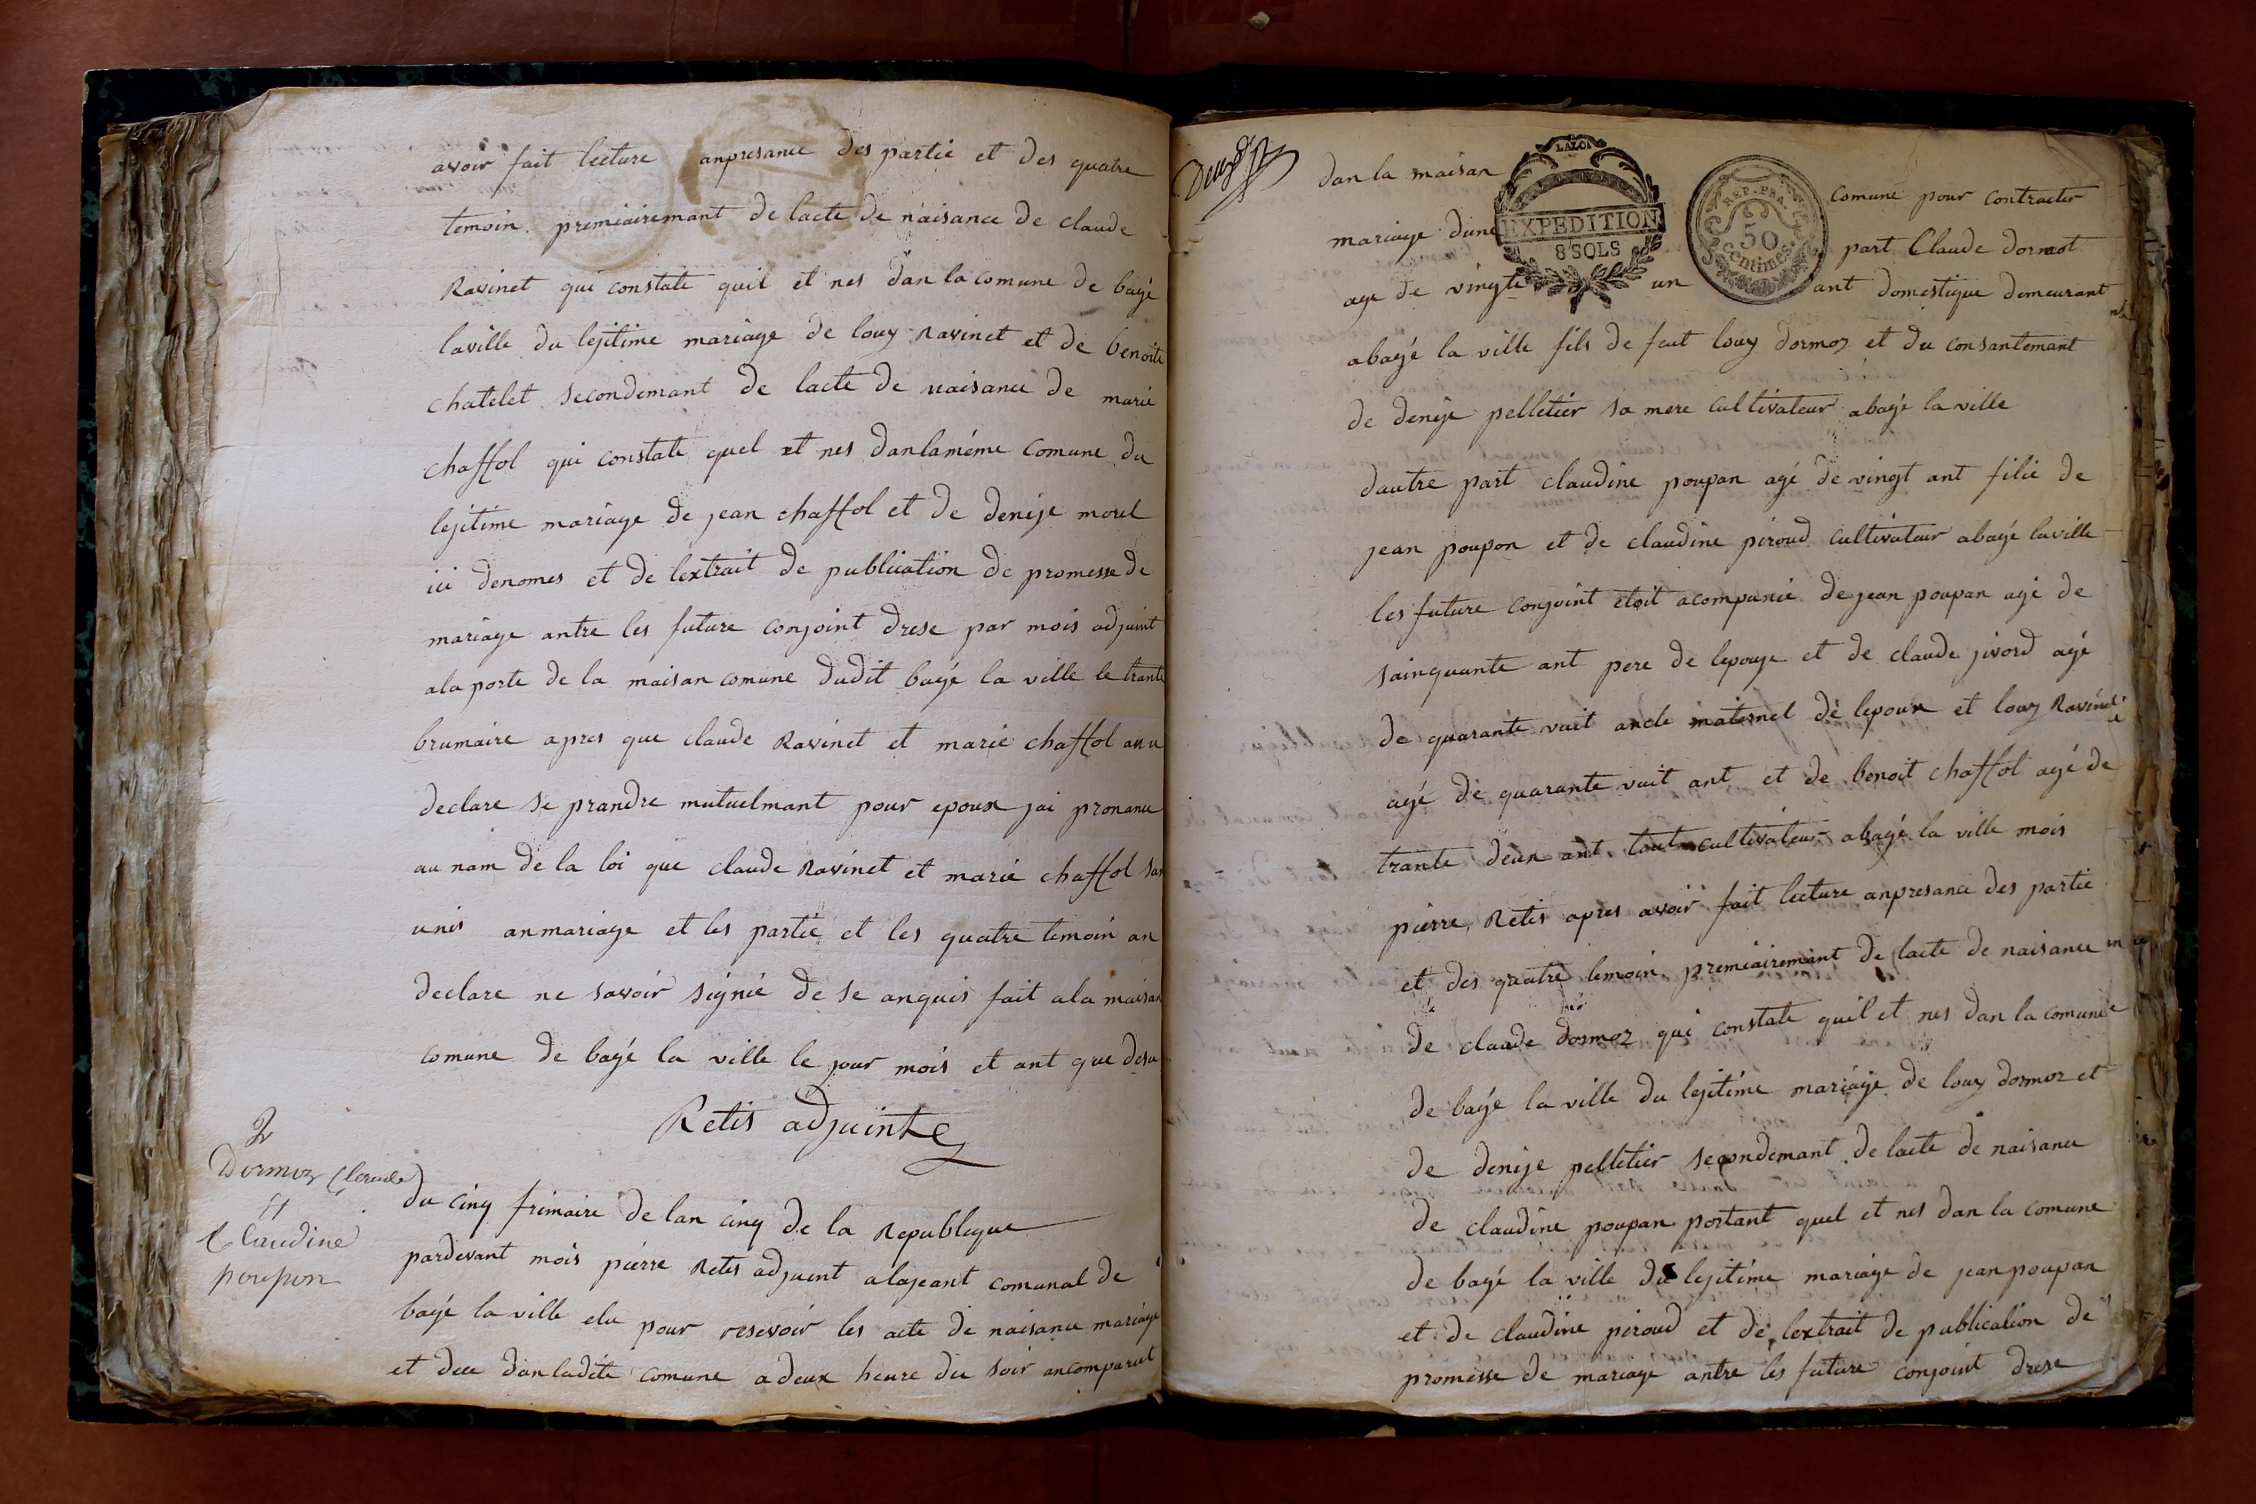 avoir fait lecture anpresance des partie et des quatre
temoin premiairemant de lacte de naisance de claude
Ravinet qui constate quil et nes dan la comune de bagé
laville du lejitime mariage de louy Ravinet et de benoite
chatelet secondemant de lacte de naisance de marie
chaffol qui constate quel et nes danlaméme comune du
lejitime mariage de jean chaffol et de denise morel
ici denomes et de lextrait de publication de promesse de
mariage antre les future conjoint drese par mois adjuint
ala porte de la maisan comune dudit bagé la ville le trante
brumaire apres que claude Ravinet et marie chaffol anu
declare se prandre mutuelmant pour epoux jai pronance
au nam de la loi que claude Ravinet et marie chaffol san
unis anmariage et les partie et les quatre temoin an
declare ne savoir signié de se anquis fait ala maisan
comune de bagé la ville le jour mois et ant que desu
Retis adjuinte
2
Dormoz Claude
et
Claudine
poupon
du cinq frimaire de lan cinq de la Republique
pardevant mois piérre Retis adjuent alajeant comunal de
bagé la ville elu pour resevoir les acte de naisance mariage
et dece danladite comune a deux heure du soir ancomparut
dan la maisan
LA LOI
EXPEDITION
8 SOLS
REP. FRA.
50
Centimes
comune pour contracter
mariage dune part Claude dormot
age de vingte un ant domestique demeurant
abagé la ville fils de feut louy dormoz et du consantemant
de denise pelletier sa mere cultivateur abagé la ville
dautre part claudine poupan agé de vingt ant filie de
jean poupon et de claudine piroud cultivateur abagé laville
les future conjoint etoit acompanié de jean poupan agé de
sainquante ant pere de lepouze et de claude jivord agé
de quarante vuit ancle maternel de lepoux et louy Ravinet
agé de quarante vuit ant et de benoit chaffol agé de
trante deux ant tout cultivateur abagé la ville mois
piérre Retis apres avoir fait lecture anpresance des partie
et des quatre temoin premiairemant de lacte de naisance
de claude dormoz qui constate quil et nes dan la comune
de bagé la ville du lejitime mariage de louy dormoz et
de denise pelletier secondemant de lacte de naisance
de claudine poupan portant quel et nes dan la comune
de bagé la ville du lejitime mariage de jean poupan
et de claudine piroud et de lextrait de publication de
promesse de mariage antre les future conjoint drese